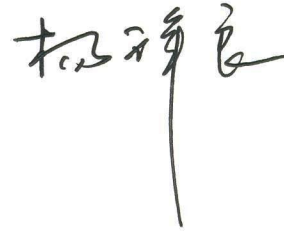 杨祥良